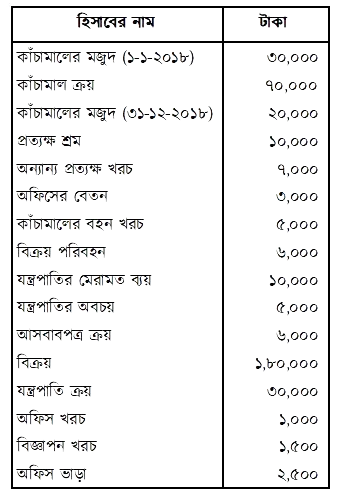 হিসাবের নাম টাকা
কাঁচামালের মজুদ (১-১-২০১৮) ৩০,০০০
কাঁচামাল ক্রয় ৭০,০০০
কাঁচামালের মজুদ (৩১-১২-২০১৮) ২০,০০০
প্রত্যক্ষ শ্রম ১০,০০০
অন্যান্য প্রত্যক্ষ খরচ ৭,০০০
অফিসের বেতন ৩,০০০
কাঁচামালের বহন খরচ ৫,০০০
বিক্রয় পরিবহন ৬,০০০
যন্ত্রপাতির মেরামত ব্যয় ১০,০০০
যন্ত্রপাতির অবচয় ৫,০০০
আসবাবপত্র ক্রয় ৬,০০০
বিক্রয় ১,৮০,০০০
যন্ত্রপাতি ক্রয় ৩০,০০০
অফিস খরচ ১,০০০
বিজ্ঞাপন খরচ ১,৫০০
অফিস ভাড়া ২,৫০০